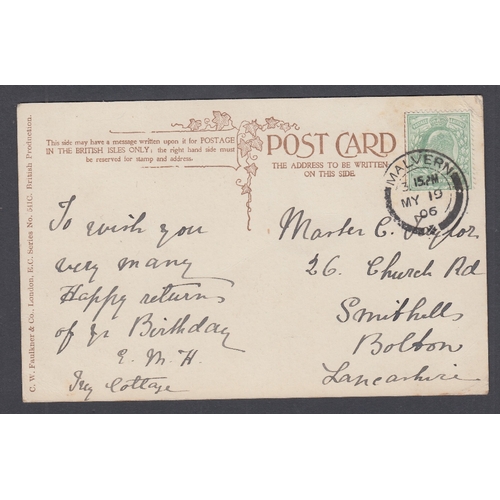 C. W. Faulkner & Co., London, E.C. Series No. 511C. British Production.
This side may have a message written upon it for POSTAGE
IN THE BRITISH ISLES ONLY: the right hand side must
be reserved for stamp and address.
POST CARD
THE ADDRESS TO BE WRITTEN
ON THIS SIDE.
MALVERN
MY 19
06
To wish you
very many
Happy returns
of yr Birthday
E. M. H.
Ivy Cottage
Master C. Taylor
26. Church Rd
Smithells
Bolton
Lancashire